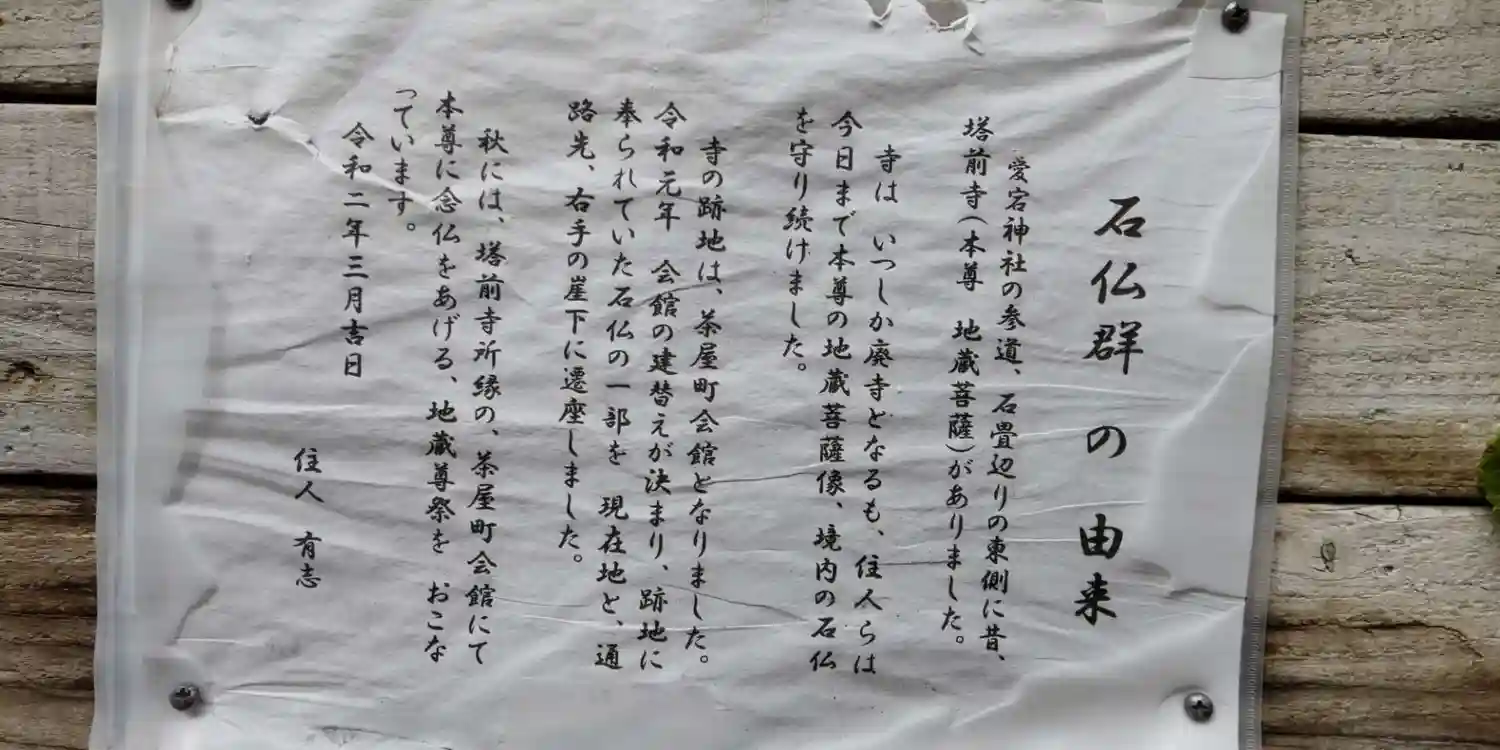 石仏群の由来
愛宕神社の参道、石畳辺りの東側に昔、
塔前寺(本尊　地蔵菩薩)がありました。
寺は　いつしか廃寺となるも、住人らは
今日まで本尊の地蔵菩薩像、境内の石仏
を守り続けました。
寺の跡地は、茶屋町会館となりました。
令和元年　会館の建替えが決まり、跡地に
奉られていた石仏の一部を　現在地と、通
路先、右手の崖下に遷座しました。
秋には、塔前寺所縁の、茶屋町会館にて
本尊に念仏をあげる、地蔵尊祭を　おこな
っています。
令和二年三月吉日
住人　有志